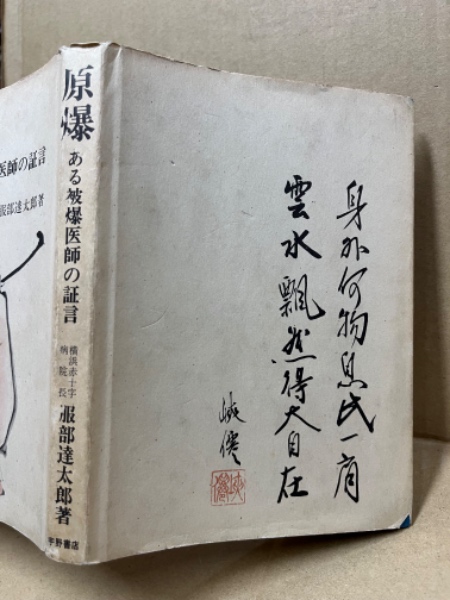 原爆 ある被爆医師の証言 横浜赤十字病院長 服部達太郎著
宇野書店
医師の証言
服部達太郎著
身外何物
一肩
雲水飄然得大自在
峡